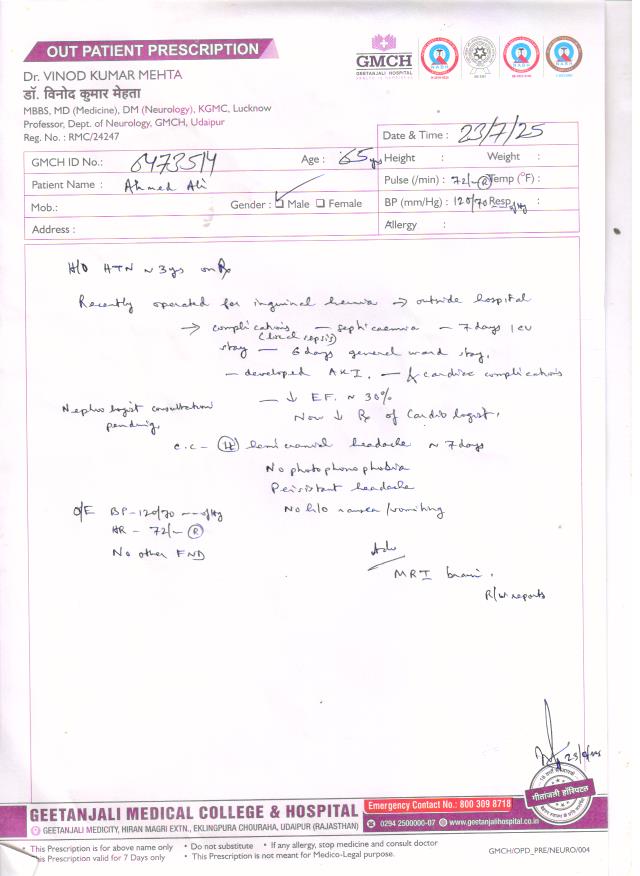 OUT PATIENT PRESCRIPTION
GMCH
GEETANJALI HOSPITAL
Dr. VINOD KUMAR MEHTA
डॉ. विनोद कुमार मेहता
MBBS, MD (Medicine), DM (Neurology), KGMC, Lucknow
Professor, Dept. of Neurology, GMCH, Udaipur
Reg. No. : RMC/24247
Date & Time : 23/7/25
GMCH ID No.: 6473514 Age : 65 yrs Height : Weight :
Patient Name : Ahmed Ali Pulse (/min) : 72/- (R) Temp (°F) :
Mob.: Gender : Male Female BP (mm/Hg) : 120/70 Resp :
Address : Allergy :
H/O HTN ~ 3ys on Rx
Recently operated for inguinal hernia → outside hospital
→ complications — septicaemia — 7 days ICU
(local sepsis)
stay — 6 days general ward stay.
- developed AKI. — & cardiac complications
— ↓ EF. ~ 30%
Nephrologist consultation pending.
Now ↓ Rx of Cardiologist.
c.c - (H) hemicranial headache ~ 7 days
No photophonophobia
Persistant headache
O/E BP-120/70 No h/o nausea/vomiting
HR - 72/- (R)
No other FND
Adv
MRI brain.
R/w reports
गीतांजली हॉस्पिटल
GEETANJALI MEDICAL COLLEGE & HOSPITAL Emergency Contact No.: 800 309 8718
GEETANJALI MEDICITY, HIRAN MAGRI EXTN., EKLINGPURA CHOURAHA, UDAIPUR (RAJASTHAN) 0294 2500000-07 www.geetanjalihospital.co.in
• This Prescription is for above name only • Do not substitute • If any allergy, stop medicine and consult doctor
This Prescription valid for 7 Days only • This Prescription is not meant for Medico-Legal purpose.
GMCH/OPD_PRE/NEURO/004